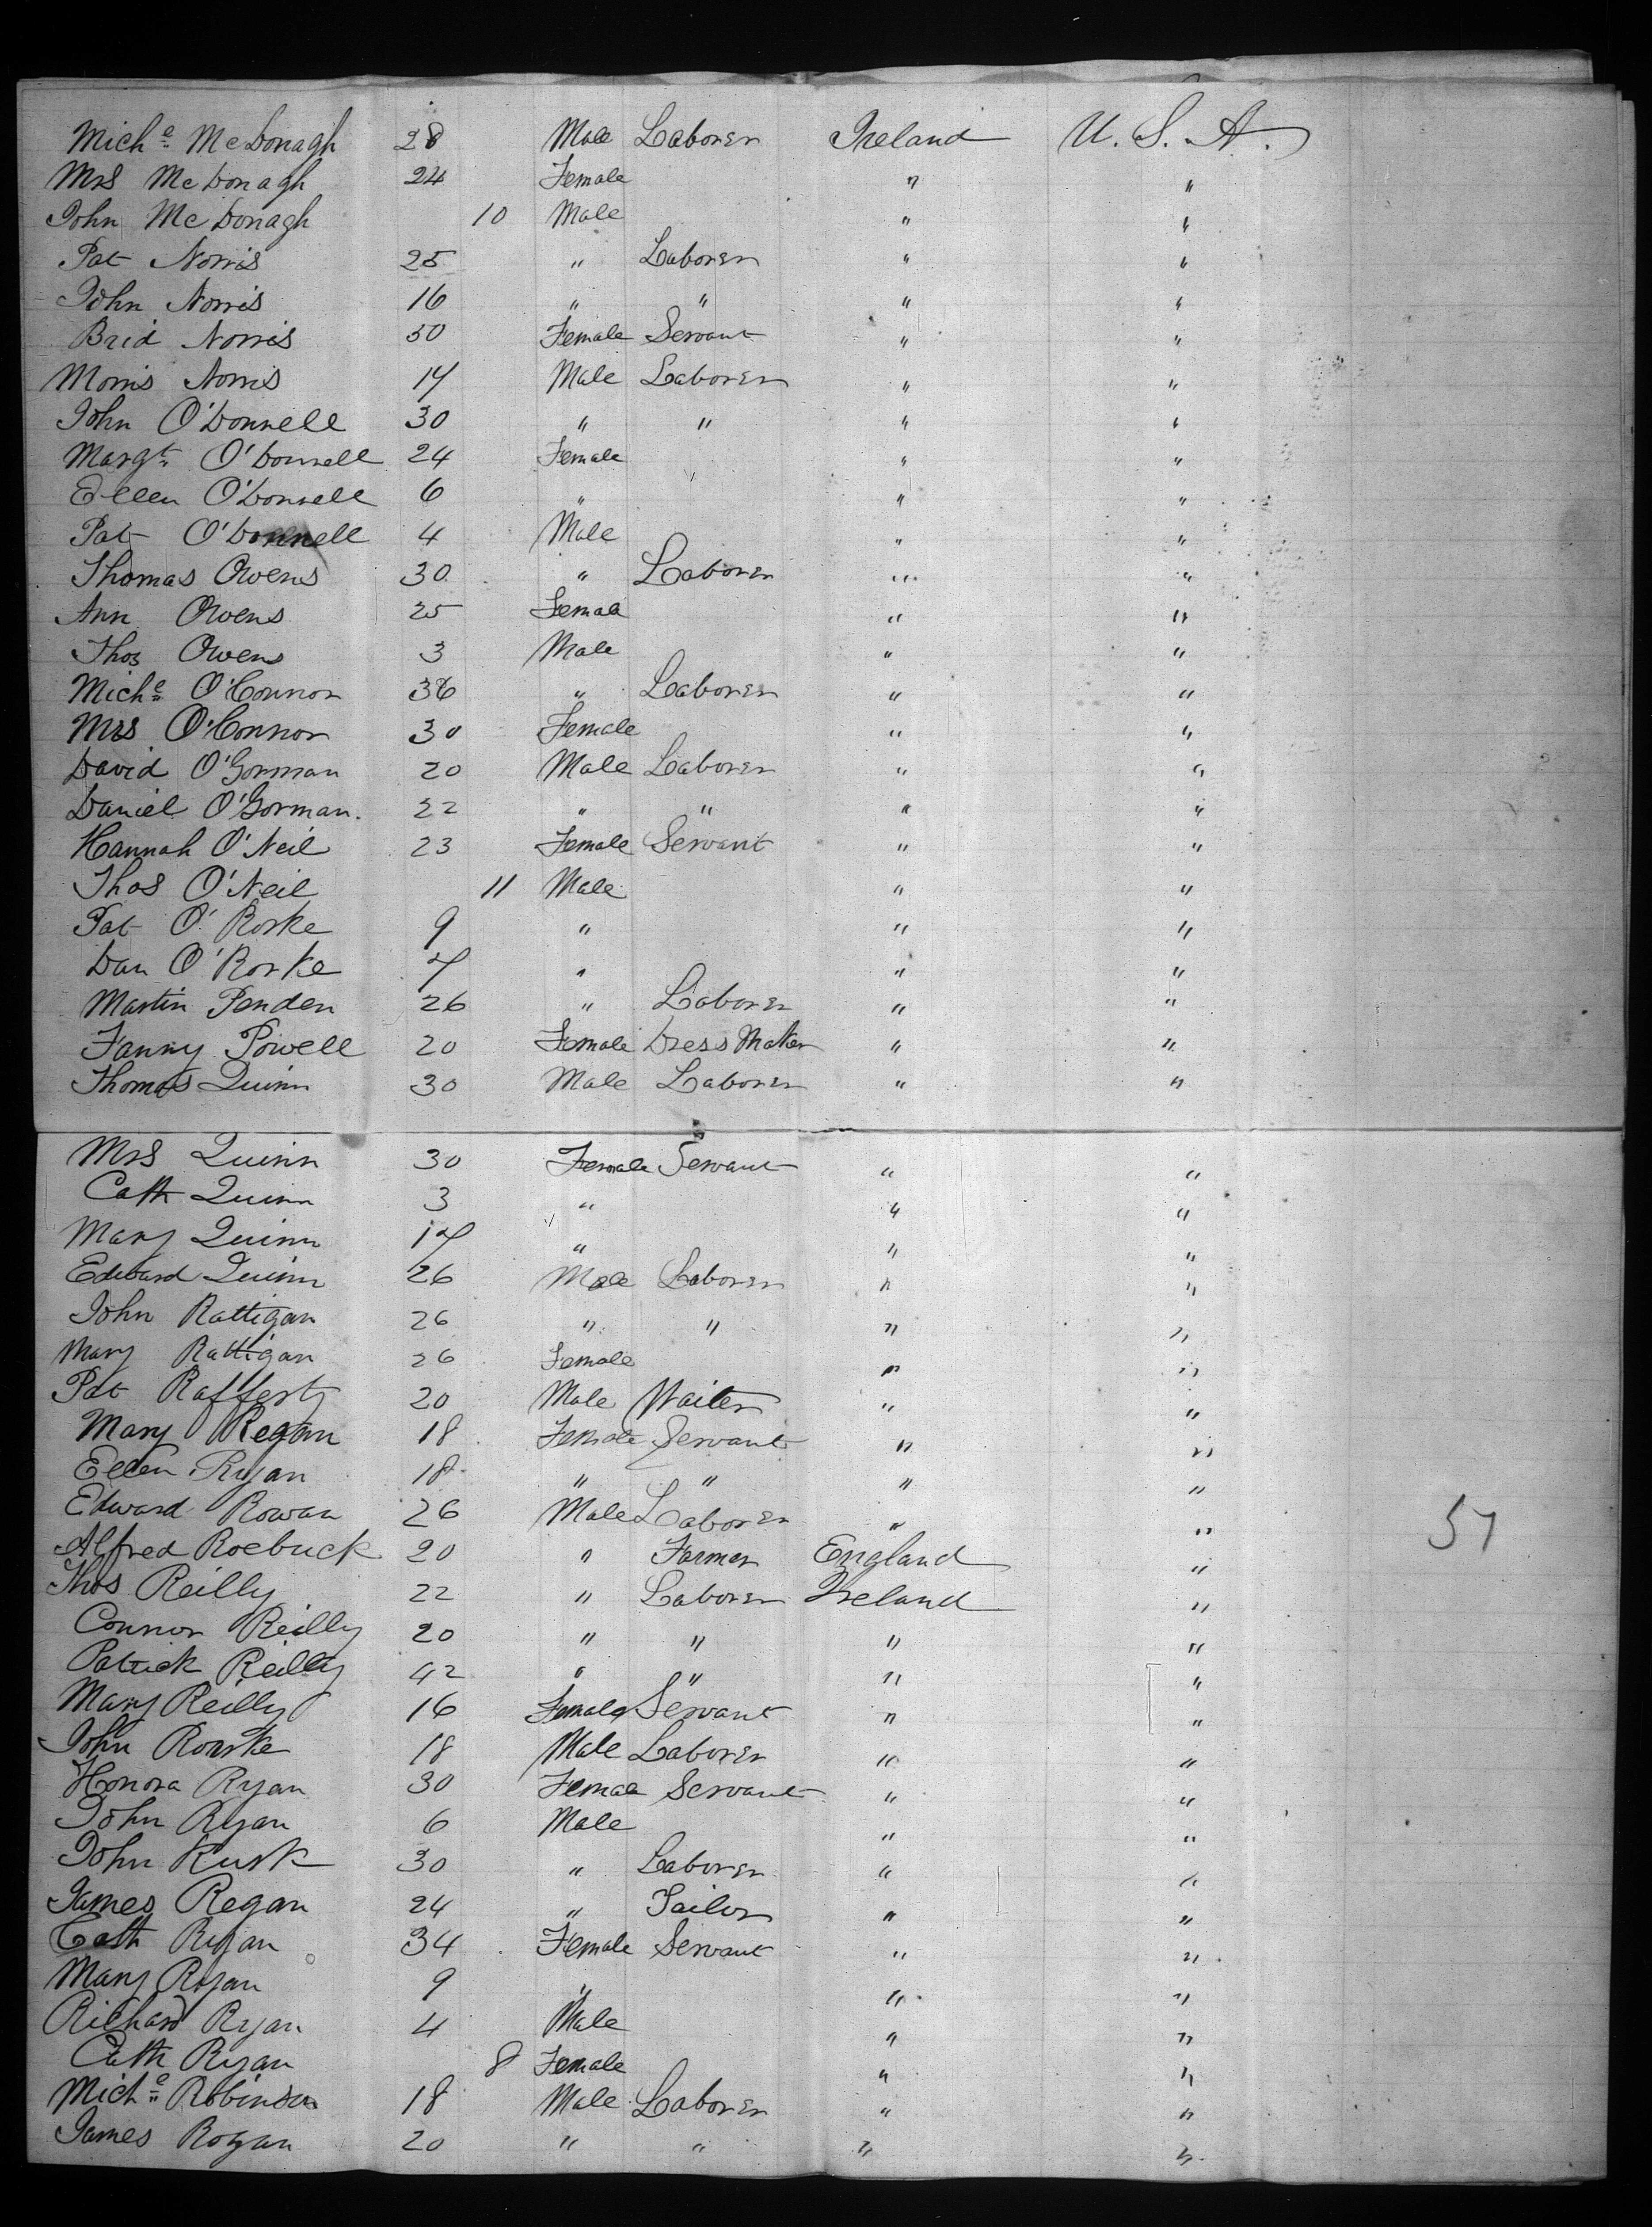 Miche McDonagh 28 Male Laborer Ireland U. S. A.
Mrs McDonagh 24 Female " "
John McDonagh 10 Male " "
Pat Norris 25 " Laborer " "
John Norris 16 " " " "
Brid Norris 50 Female Servant " "
Morris Norris 14 Male Laborer " "
John O'Donnell 30 " " " "
Margt O'Donnell 24 Female " "
Ellen O'Donnell 6 " " "
Pat O'Donnell 4 Male " "
Thomas Owens 30 " Laborer " "
Ann Owens 25 Female " "
Thos Owens 3 Male " "
Miche O'Connor 36 " Laborer " "
Mrs O'Connor 30 Female " "
David O'Gorman 20 Male Laborer " "
Daniel O'Gorman. 22 " " " "
Hannah O'Neil 23 Female Servant " "
Thos O'Neil 11 Male " "
Pat O'Rorke 9 " " "
Dan O'Rorke 7 " " "
Martin Penden 26 " Laborer " "
Fanny Powell 20 Female Dress Maker " "
Thomas Quinn 30 Male Laborer " "
Mrs Quinn 30 Female Servant " "
Cath Quinn 3 " " "
Mary Quinn 17 " " "
Edward Quinn 26 Male Laborer " "
John Rattigan 26 " " " "
Mary Rattigan 26 Female " "
Pat Rafferty 20 Male Waiter " "
Mary Regan 18 Female Servant " "
Ellen Ryan 18 " " " "
Edward Rowan 26 Male Laborer " "
57
Alfred Roebuck 20 " Farmer England "
Thos Reilly 22 " Laborer Ireland "
Connor Reilly 20 " " " "
Patrick Reilly 42 " " " "
Mary Reilly 16 Female Servant " "
John Rourke 18 Male Laborer " "
Honora Ryan 30 Female Servant " "
John Ryan 6 Male " "
John Rusk 30 " Laborer " "
James Regan 24 " Tailor " "
Cath Ryan 34 Female Servant " "
Mary Ryan 9 " " "
Richard Ryan 4 Male " "
Cath Ryan 8 Female " "
Miche Robinson 18 Male Laborer " "
James Rogan 20 " " " "